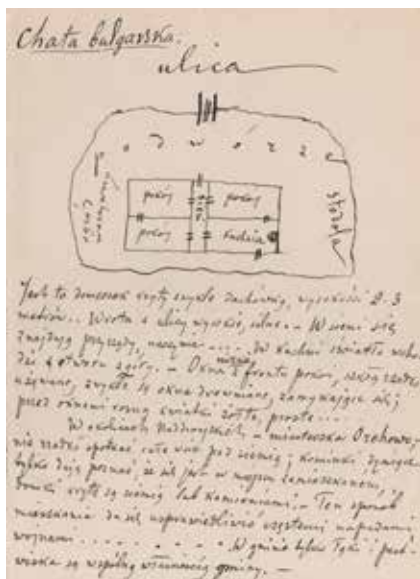 Chata bułgarska.
ulica
podwórze
ogród warzywny
stodoła
pokój
sień
pokój
pokój
kuchnia
Jest to domeczek kryty zwykle dachówką, wysokości 2-3
metrów.. Wrota z ulicy wysokie, silne. – W sieni się
znajdują przyrządy, naczynia .... Do kuchni światło wcho-
dzi z otworu z góry. – Okna z frontu pokoi, szkłą rzadko
używane, zwykle są okna drewniane, zamykające się;
przed oknami rosną kwiatki żółte, proste...
W okolicach – miasteczka Orehowo,
nie rzadko spotkać całe wsie pod ziemią; kominki dymiące
tylko dają poznać, że się jest w miejscu zamieszkanem,
domki kryte są ziemią lub kamieniami. – Ten sposób
mieszkania da się usprawiedliwić częstemi napadami
wojnami . . . . . . . W gminie bywa łąki i past-
wiska są wspólną własnością gminy. –